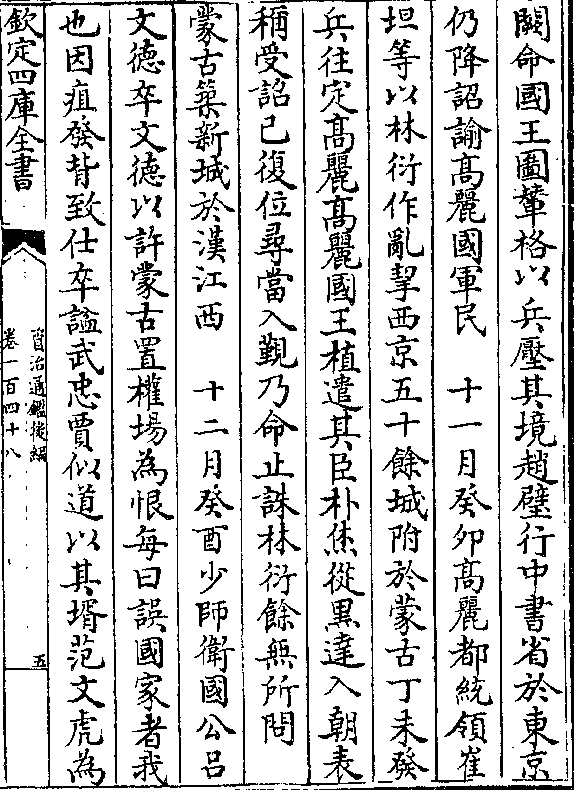 闕命國王圖輦格以兵壓其境趙璧行中書省於東京
仍降詔諭高麗國軍民　十一月癸卯高麗都統領崔
坦等以林衍作亂挈西京五十餘城附於蒙古丁未發
兵往定高麗高麗國王植遣其臣朴烋從黒達入朝表
稱受詔已復位尋當入覲乃命止誅林衍餘無所問
蒙古築新城於漢江西　十二月癸酉少師衛國公呂
文德卒文德以許蒙古置榷場為恨每曰誤國家者我
也因疽發背致仕卒諡武忠賈似道以其壻范文虎為
欽定四庫全書
資治通鑑後編
卷一百四十八
五